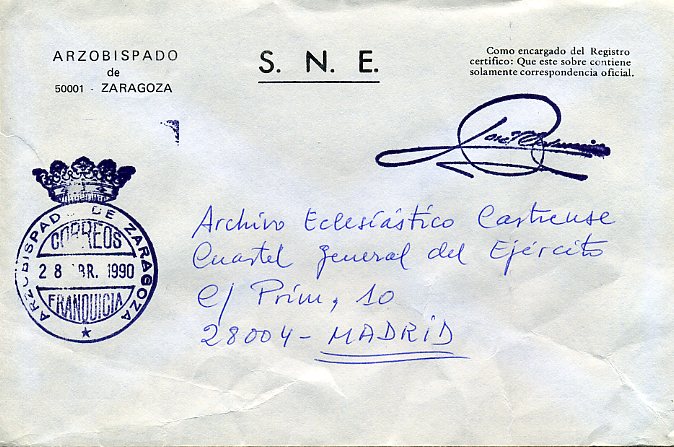 ARZOBISPADO
de
50001 - ZARAGOZA
S. N. E.
Como encargado del Registro
certifico: Que este sobre contiene
solamente correspondencia oficial.
ARZOBISPAD DE ZARAGOZA
CORREOS
28 BR. 1990
FRANQUICIA
Archivo Eclesiástico Castrense
Cuartel General del Ejército
C/ Prim, 10
28004 - MADRID